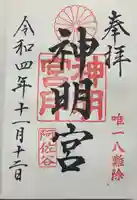 奉拝
唯一八難除
神明宮
阿佐谷
令和四年十一月十二日